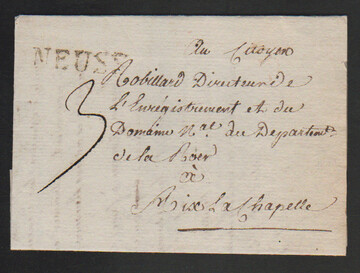 NEUSS
Au Citoyen
Robillard Directeur de
l'Enrégistrement et du
Domaine N.al du Département
de la Röer
à
Aix La Chapelle
3